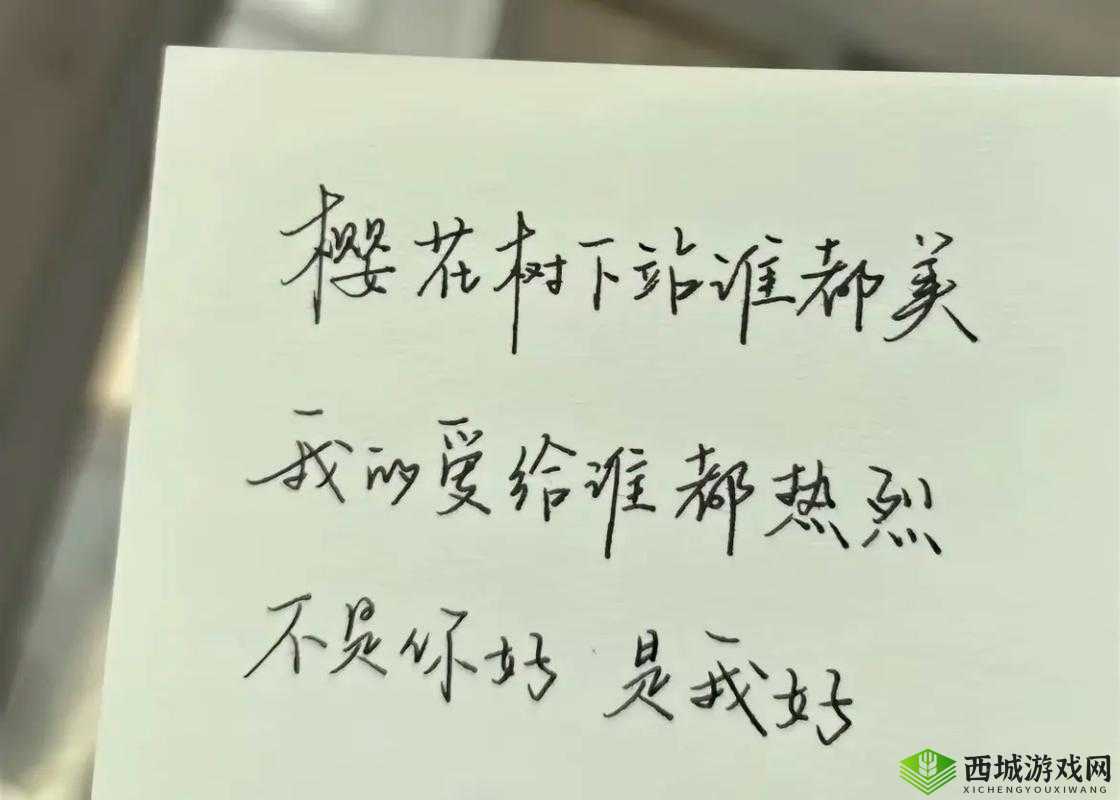 樱花树下站谁都美
我的爱给谁都热烈
不是你好 是我好
西城游戏网
XICHENGYOUXIWANG